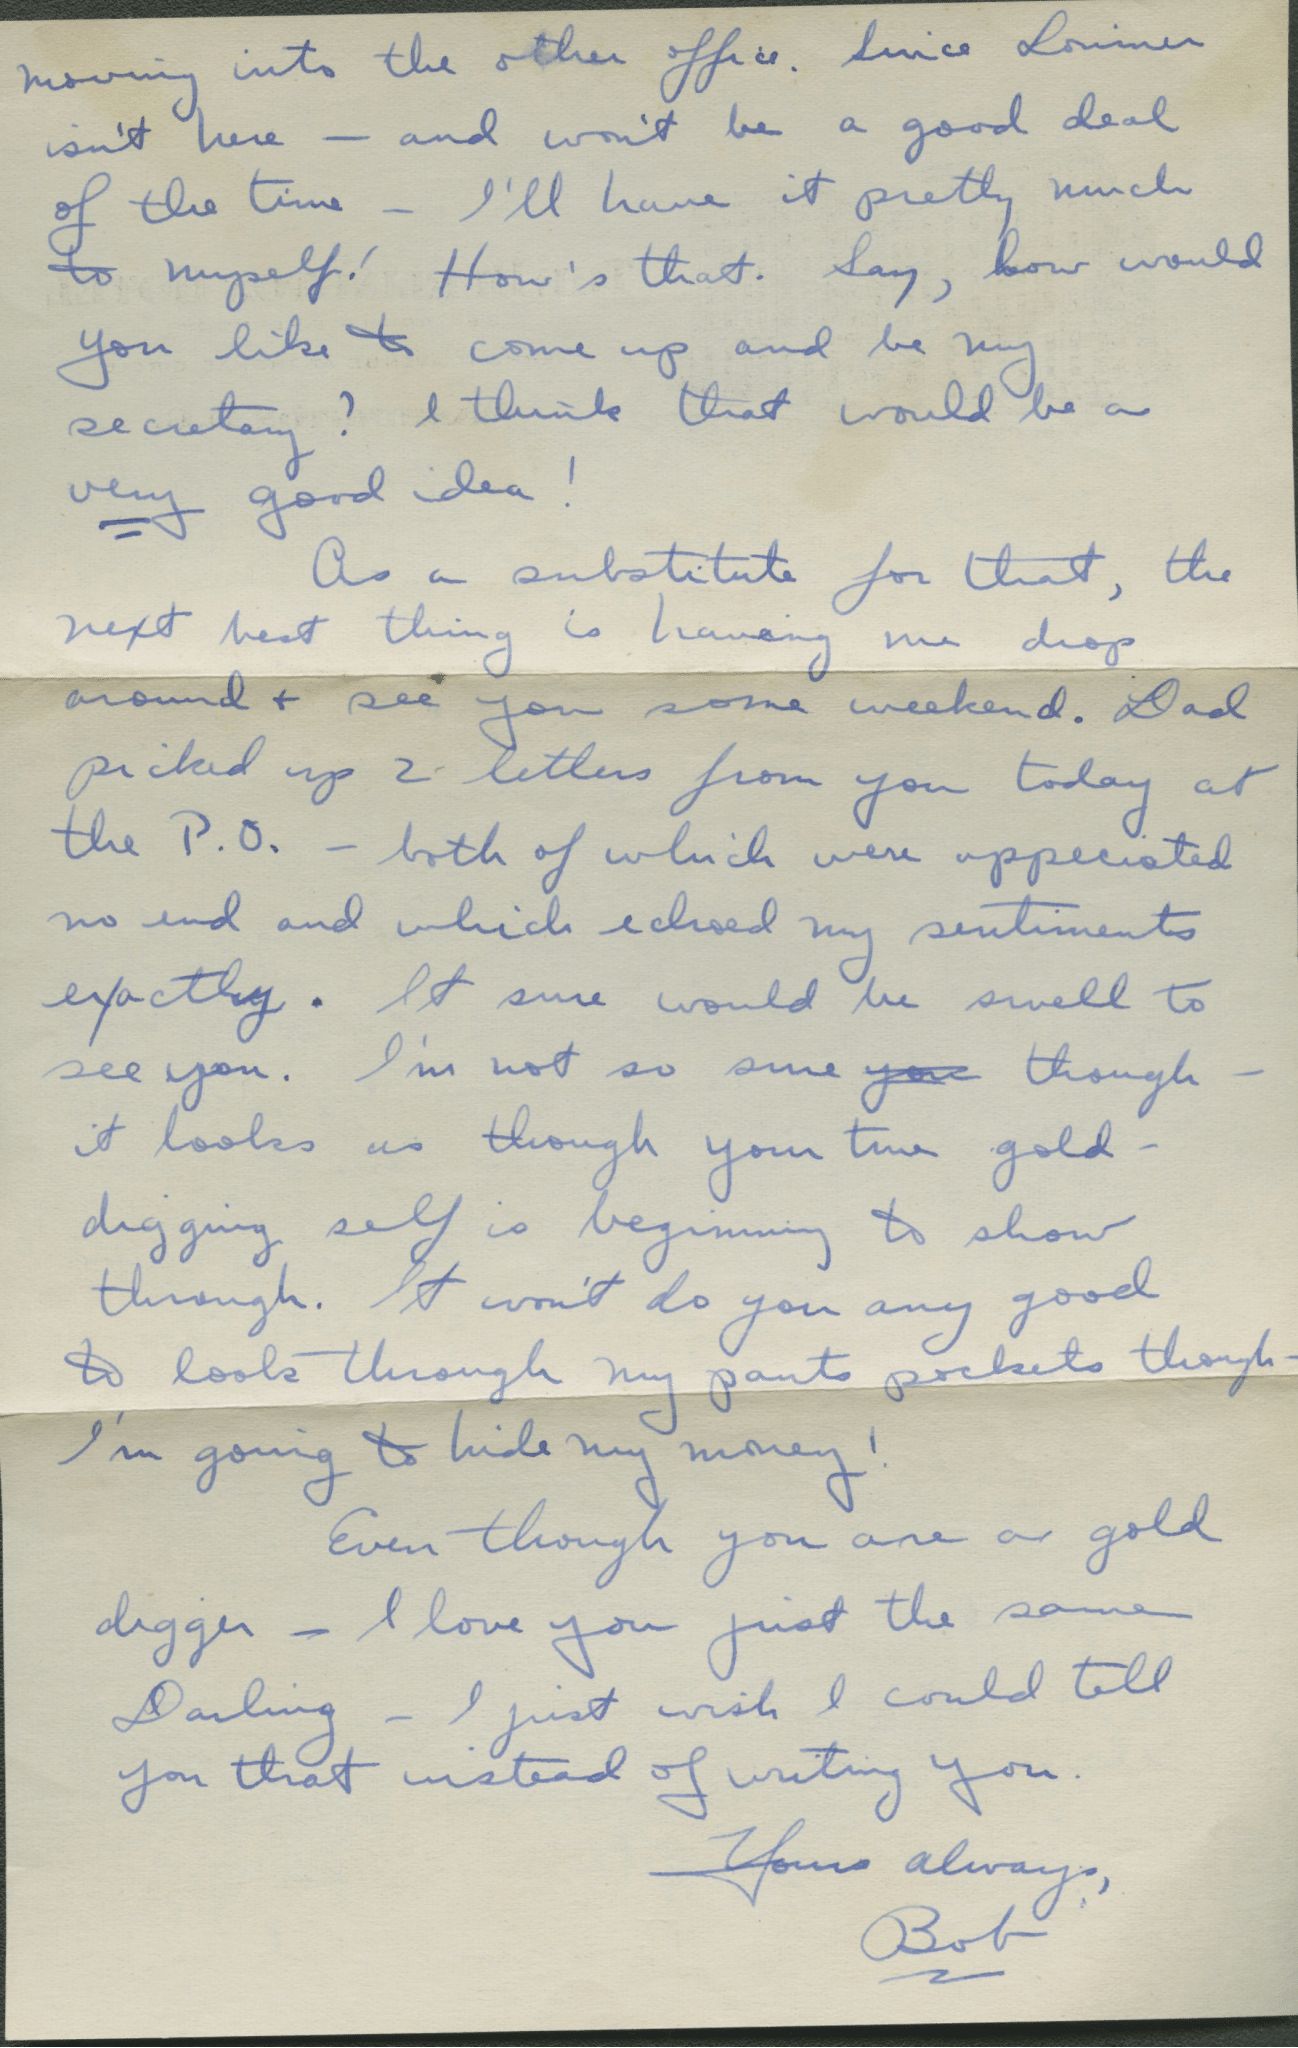 moving into the other office. Since Lorimer
isn't here — and won't be a good deal
of the time — I'll have it pretty much
to myself! How's that. Say, how would
you like to come up and be my
secretary? I think that would be a
very good idea!
As a substitute for that, the
next best thing is having me drop
around + see you some weekend. Dad
picked up 2 letters from you today at
the P.O. — both of which were appreciated
no end and which echoed my sentiments
exactly. It sure would be swell to
see you. I'm not so sure you though —
it looks as though your true gold-
digging self is beginning to show
through. It won't do you any good
to look through my pants pockets though—
I'm going to hide my money!
Even though you are a gold
digger — I love you just the same
Darling — I just wish I could tell
you that instead of writing you.
Yours always,
Bob